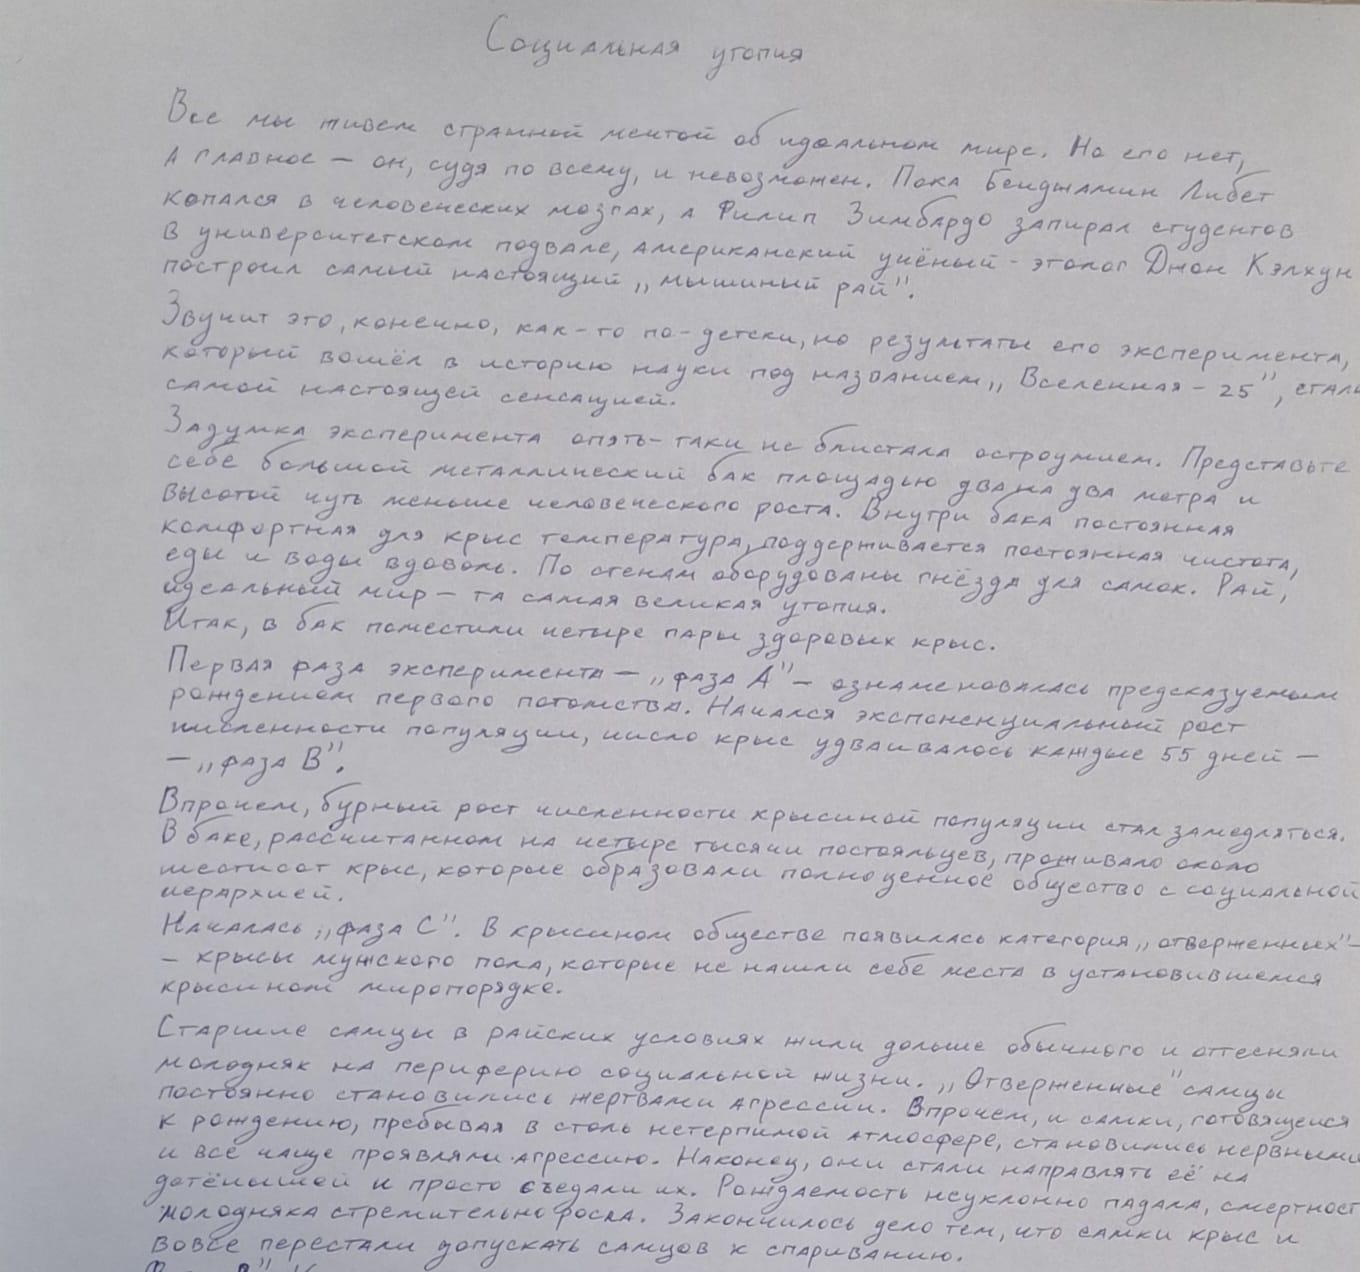 Социальная утопия
Все мы живём странной мечтой об идеальном мире. Но его нет,
А главное – он, судя по всему, и невозможен. Пока Бенджамин Либет
копался в человеческих мозгах, а Филип Зимбардо запирал студентов
в университетском подвале, американский учёный-этолог Джон Кэлхун
построил самый настоящий „мышиный рай".
Звучит это, конечно, как-то по-детски, но результаты его эксперимента,
который вошёл в историю науки под названием „Вселенная-25", стали
самой настоящей сенсацией.
Задумка эксперимента опять-таки не блистала остроумием. Представьте
себе большой металлический бак площадью два на два метра и
высотой чуть меньше человеческого роста. Внутри бака постоянная
комфортная для крыс температура, поддерживается постоянная чистота,
еды и воды вдоволь. По стенам оборудованы гнёзда для самок. Рай,
идеальный мир – та самая великая утопия.
Итак, в бак поместили четыре пары здоровых крыс.
Первая фаза эксперимента – „фаза А" – ознаменовалась предсказуемым
рождением первого потомства. Начался экспоненциальный рост
численности популяции, число крыс удваивалось каждые 55 дней –
– „фаза В".
Впрочем, бурный рост численности крысиной популяции стал замедляться.
В баке, рассчитанном на четыре тысячи постояльцев, проживало около
шестисот крыс, которые образовали полноценное общество с социальной
иерархией.
Началась „фаза С". В крысином обществе появилась категория „отверженных" –
– крысы мужского пола, которые не нашли себе места в установившемся
крысином миропорядке.
Старшие самцы в райских условиях жили дольше обычного и оттесняли
молодняк на периферию социальной жизни. „Отверженные" самцы
постоянно становились жертвами агрессии. Впрочем, и самки, готовящиеся
к рождению, пребывая в столь нетерпимой атмосфере, становились нервными
и всё чаще проявляли агрессию. Наконец, они стали направлять её на
детёнышей и просто съедали их. Рождаемость неуклонно падала, смертность
молодняка стремительно росла. Закончилось дело тем, что самки крыс и
вовсе перестали допускать самцов к спариванию.